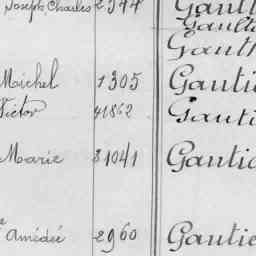 Joseph Charles 2344 Gaull
Gaulte
Gauth
Michel 1305 Gauti
Victor 41862 Gauti
Marie 81041 Gautie
Amédée 2960 Gautie